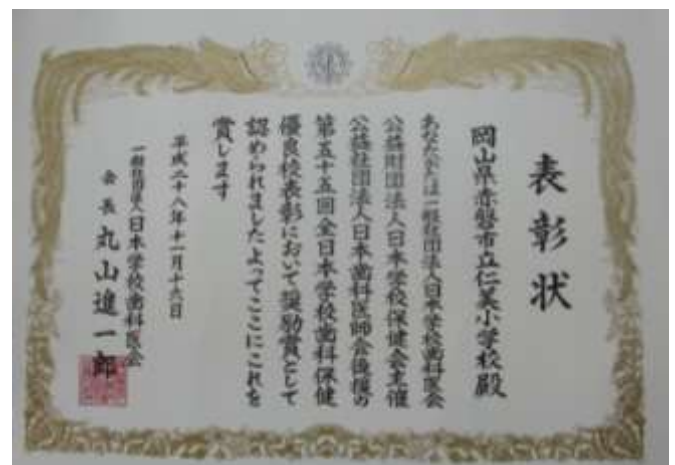 表彰状
岡山県赤磐市立仁美小学校殿
あなたがたは一般社団法人日本学校歯科医会
公益財団法人日本学校保健会主催
公益社団法人日本歯科医師会後援の
第五十五回全日本学校歯科保健
優良校表彰において奨励賞として
認められましたよってここにこれを
賞します
平成二十八年十一月十六日
一般社団法人日本学校歯科医会
会長 丸山進一郎